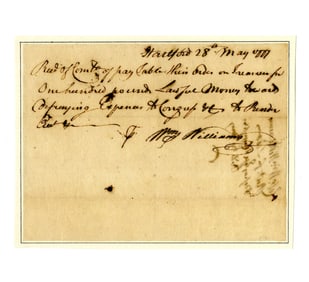 Hartford 28th May 1777
Recd of Comtt of pay Table their order on Treasurer for
One hundred pounds Lawful Money toward
defraying Expenses to Congress &c to Render
Acct &
Wm Williams